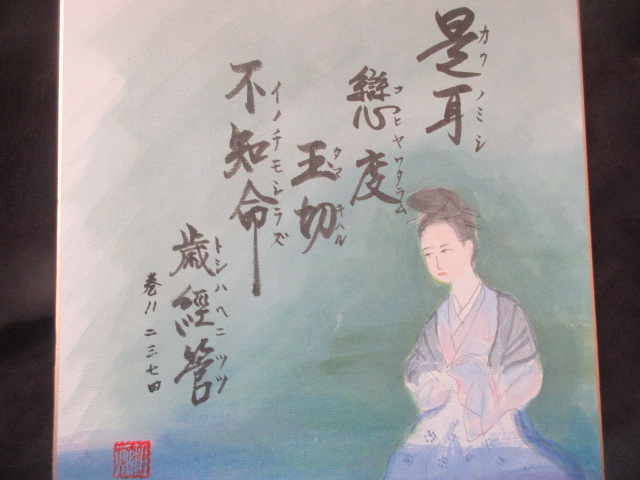 是耳
カクノミシ
戀度
コヒヤワタラム
玉切
タマキハル
不知命
イノチモシラズ
歳經管
トシハヘニツツ
巻11 二三七四